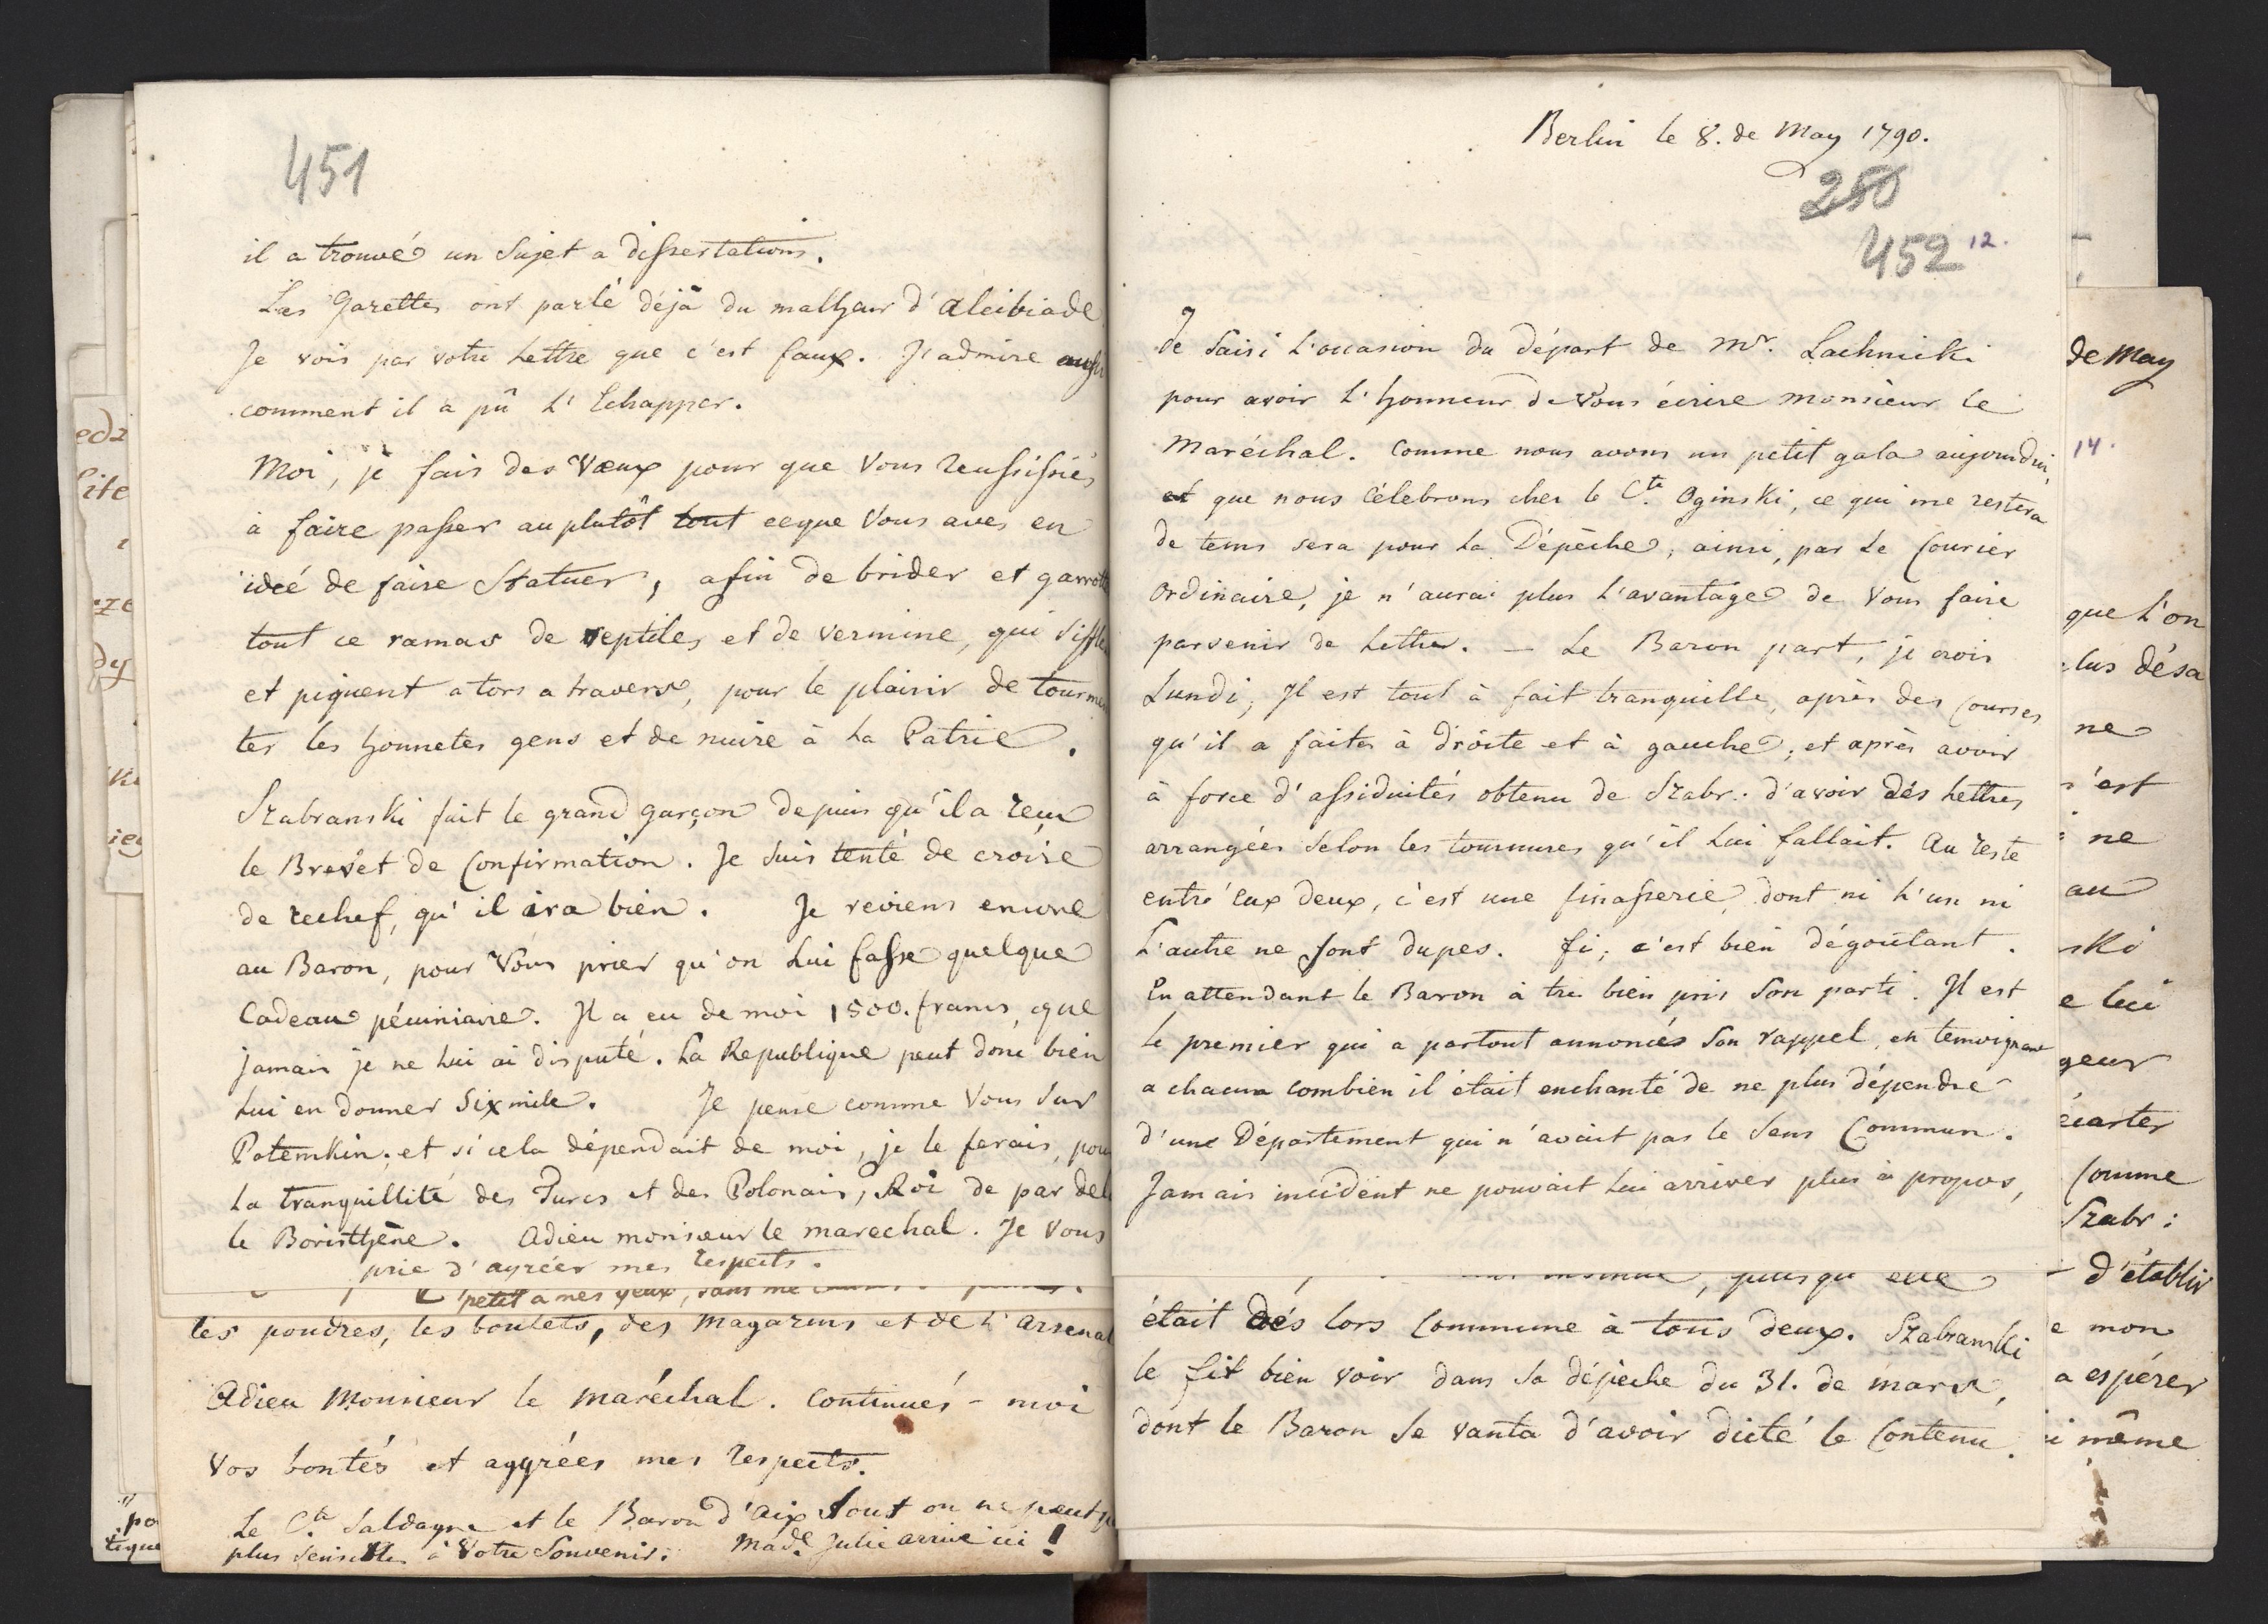 451
il a trouvé un Sujet a dissertations.
Les Gazettes ont parlé déjà du malheur d'Alcibiade
Je vois par votre Lettre que c'est faux. J'admire aussi
comment il a pû L'Echapper.
Moi, je fais des Vœux pour que Vous reussissiés
à faire passer au plutôt tout ceque Vous aves en
ideé de faire Statuer, afin de brider et garrott
tout ce ramas de reptiles et de vermine, qui siffle
et piquent a tors a travers, pour le plaisir de tourme
ter les honnetes gens et de nuire à la Patrie.
Szabranski fait le grand garçon depuis qu'il a reçu
le Brevet de Confirmation. Je suis tenté de croire
de rechef, qu'il ira bien. Je reviens encore
au Baron, pour Vous prier qu'on Lui fasse quelque
Cadeau pécuniaire. Il a eu de moi 1500. francs, que
jamais je ne Lui ai disputé. La Republique peut donc bien
Lui en donner Six mile. Je pense comme Vous sur
Potemkin; et si cela dépendait de moi, je le ferais, pour
La tranquillité des Turcs et des Polonais, Roi de par del
le Boristhène. Adieu monsieur le marechal. Je Vous
prie d'agréer mes respects.
petit a mes yeux, sans me
les poudres, les boulets, des Magazins et de L'arsenal
Adieu Monsieur le maréchal. Continués-moi
Vos bontés et aggrées mes respects.
Le Cte. Saldagne et le Baron d'Aix sont on ne peut p
plus sensibles à Votre Souvenir. Made. Julie arrive ici!
Berlin le 8. de May 1790.
250
452 12.
Je Saisi L'occasion du départ de Mr. Lachnicki
pour avoir L'honneur de Vous écrire Monsieur le
Maréchal. Comme nous avons un petit gala aujourdui,
et que nous Célebrons ches le Cte. Oginski, ce qui me restera
de tems sera pour la Dépêche; ainsi, par Le Courier
Ordinaire, je n'aurai plus L'avantage de Vous faire
parvenir de Lettre. — Le Baron part, je crois
Lundi; Il est tout à fait tranquille, après des Courses
qu'il a faites à droite et à gauche; et après avoir
à force d'assiduités obtenu de Szabr: d'avoir des Lettres
arrangées Selon les tournures qu'il Lui fallait. Au reste
entre eux deux, c'est une finasserie, dont ni L'un ni
L'autre ne sont dupes. fi; c'est bien dégoutant.
En attendant le Baron à tres bien pris Son parti. Il est
Le premier qui a partout annoncés Son rappel, en temoignant
a chacun combien il était enchanté de ne plus dépendre
d'une Département qui n'avait pas le Sens Commun.
Jamais incident ne pouvait Lui arriver plus à propos,
puisqu'elle
était dés lors Commune à tous deux. Szabranski
le fit bien voir dans sa dépeche du 31. de mars,
dont le Baron Se vanta d'avoir dicté le Contenu.
de May
14.
que L'on
lus désa
ne
s'est
ne
au
ski
e lui
geur
écarter
Comme
Szabr:
d'établir
e mon
a espérer
i même